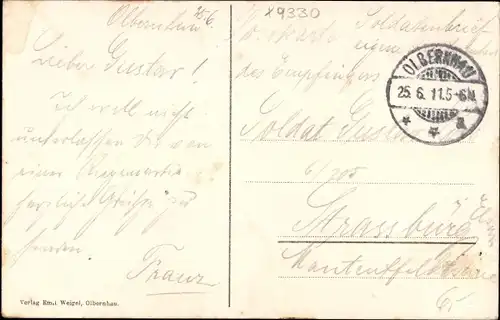 Olbernhau 25.6.
Lieber Gustav!
Ich will nicht
unterlassen Dir von
einer
herzliche Grüße zu
senden.
Franz
Verlag Emil Weigel, Olbernhau.
x9330
Soldatenbrief
des Empfängers
OLBERNHAU
25.6.11.5-6N.
* * a
Soldat Gustav
6/105
Strassburg
i/Elsass
65